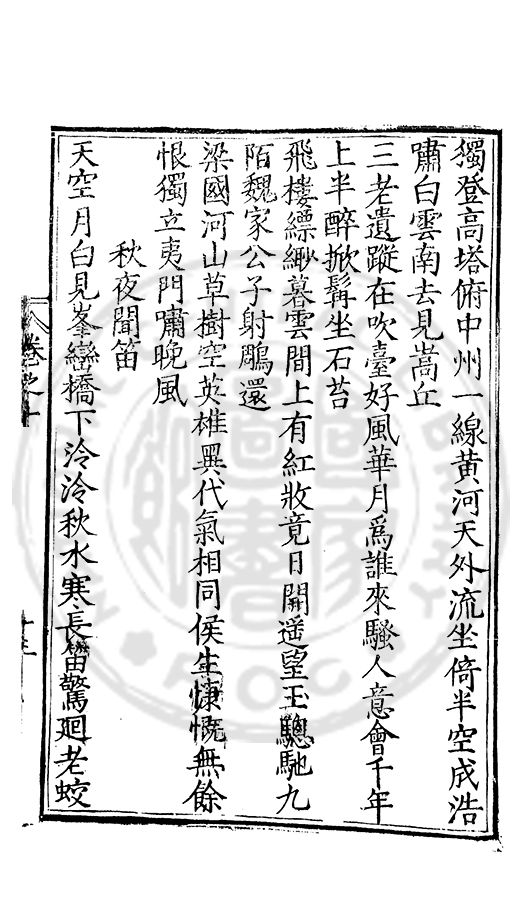 獨登高塔俯中州一線黄河天外流坐倚半空成浩
嘯白雲南去見嵩丘
三老遺蹤在吹臺好風華月爲誰來騷人意會千年
上半醉掀髯坐石苔
飛樓縹緲暮雲間上有紅妝竟日開遥望玉驄馳九
陌魏家公子射鵰還
梁國河山草樹空英雄異代氣相同侯生慷慨無餘
恨獨立夷門嘯晚風
秋夜聞笛
天空月白見峯巒橋下泠泠秋水寒長笛驚廻老蛟
卷之十